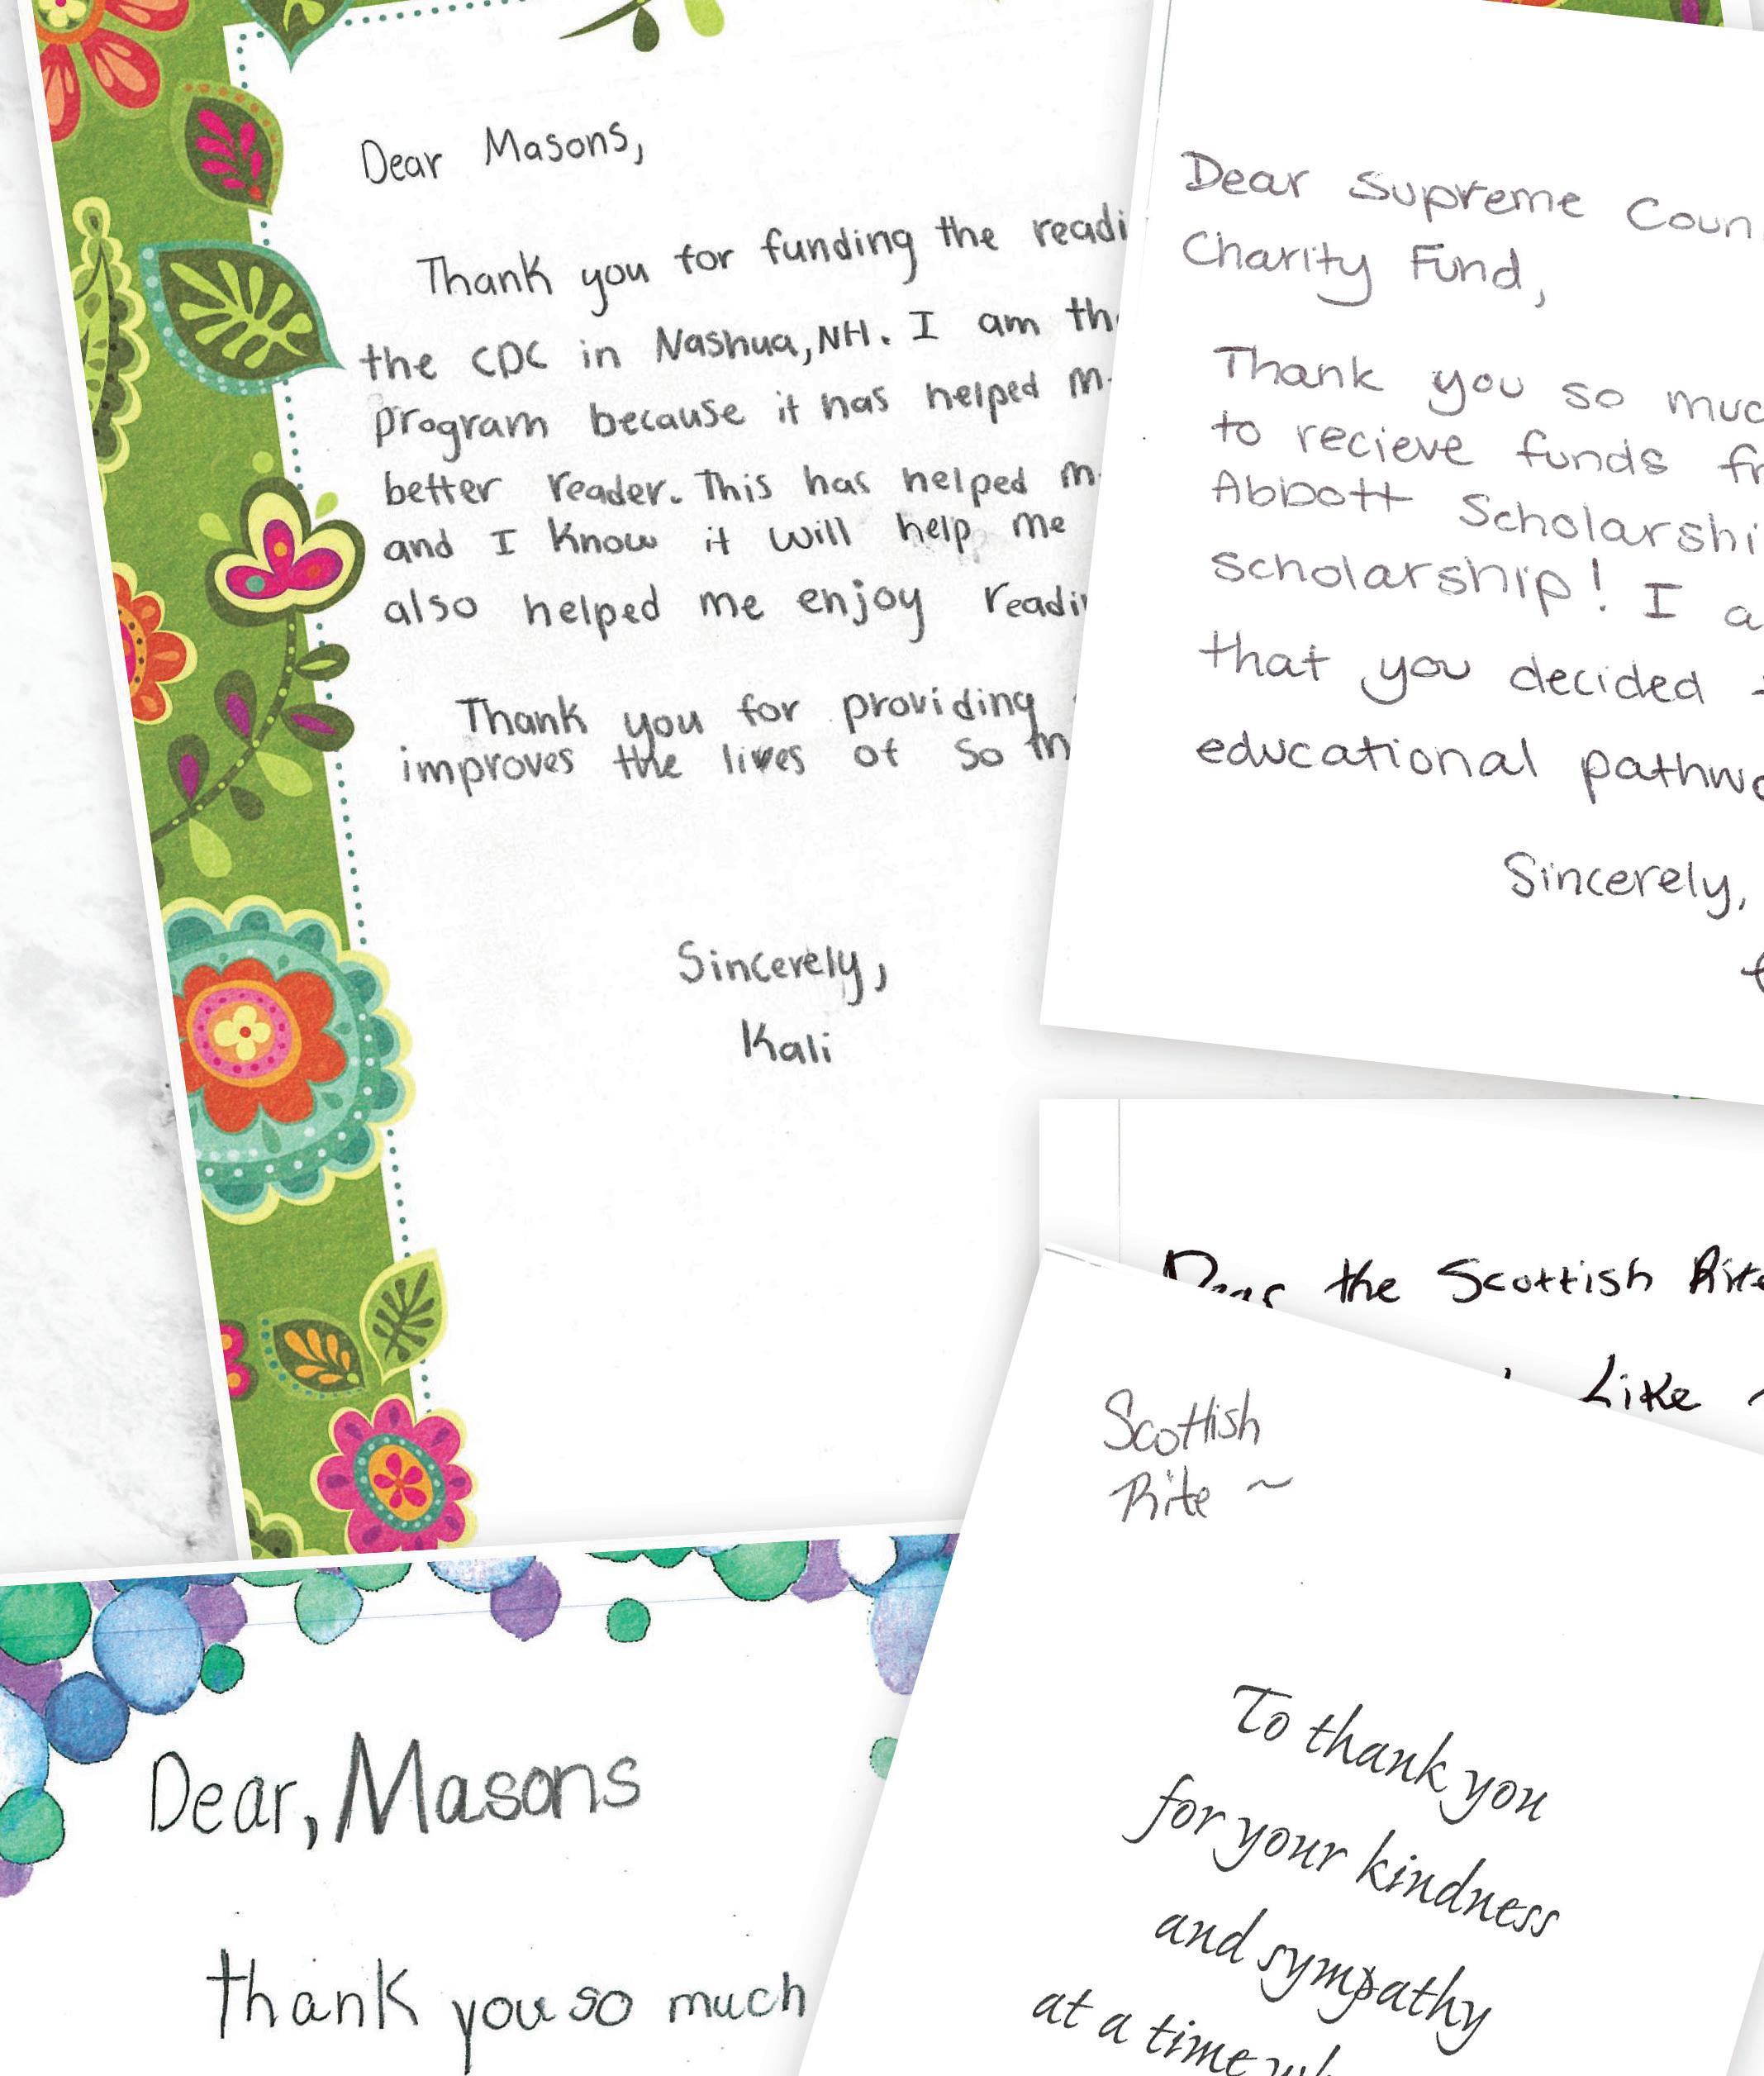 Dear Masons,
Thank you for funding the readi
the CDC in Nashua, NH. I am
program because it has helped
better reader. This has helped
and I know it will help me
also helped me enjoy readi
Thank you for providing
improves the lives of so
Sincerely,
Kali
Dear Supreme Coun
Charity Fund,
Thank you so muc
to recieve funds fr
Abbott Scholarshi
scholarship! I a
that you decided
educational pathwa
Sincerely,
Dear the Scottish Rite
Like
Scottish
Rite ~
To thank you
for your kindness
and sympathy
at a time
Dear, Masons
thank you so much